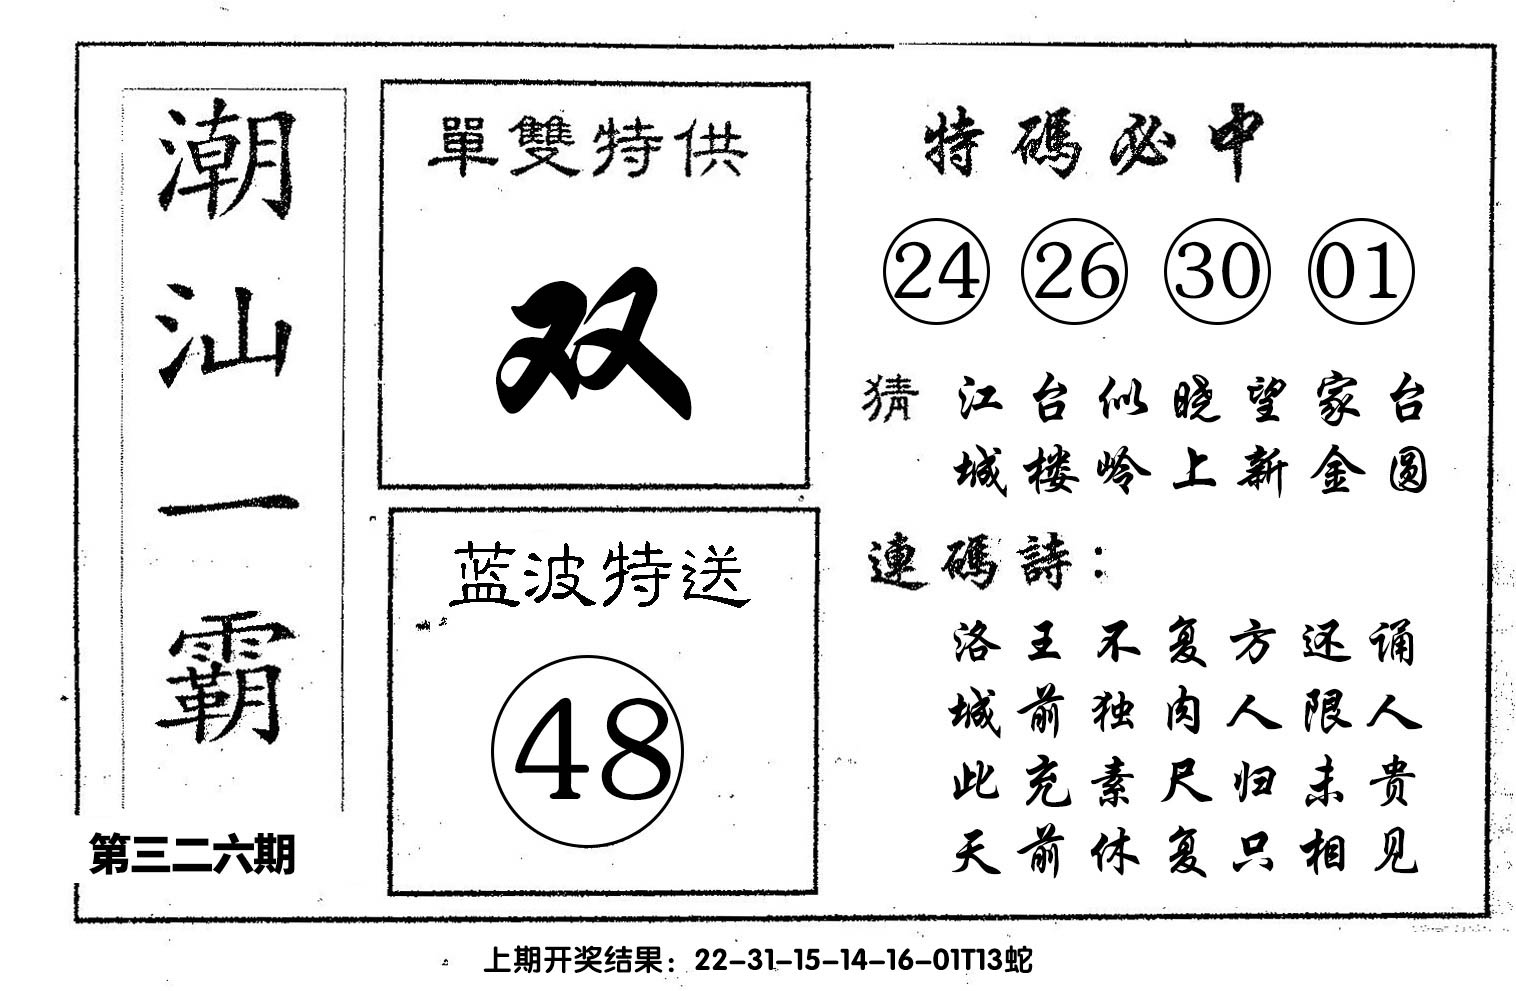 潮汕一霸
第三二六期
單雙特供
双
蓝波特送
48
特碼必中
24 26 30 01
猜 江台似晓望家台
城楼岭上新金圆
連碼詩：
洛王不复方还诵
城前独肉人限人
此充素尺归未贵
天前休复只相见
上期开奖结果：22-31-15-14-16-01T13蛇